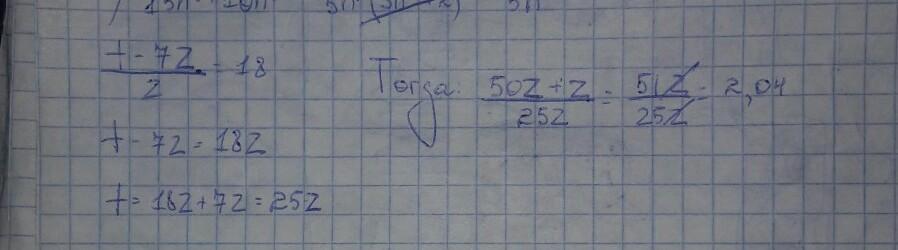 \frac{t - 7z}{z} = 18
Тогда: \frac{50z + z}{25z} = \frac{51z}{25z} = 2,04
t - 7z = 18z
t = 18z + 7z = 25z